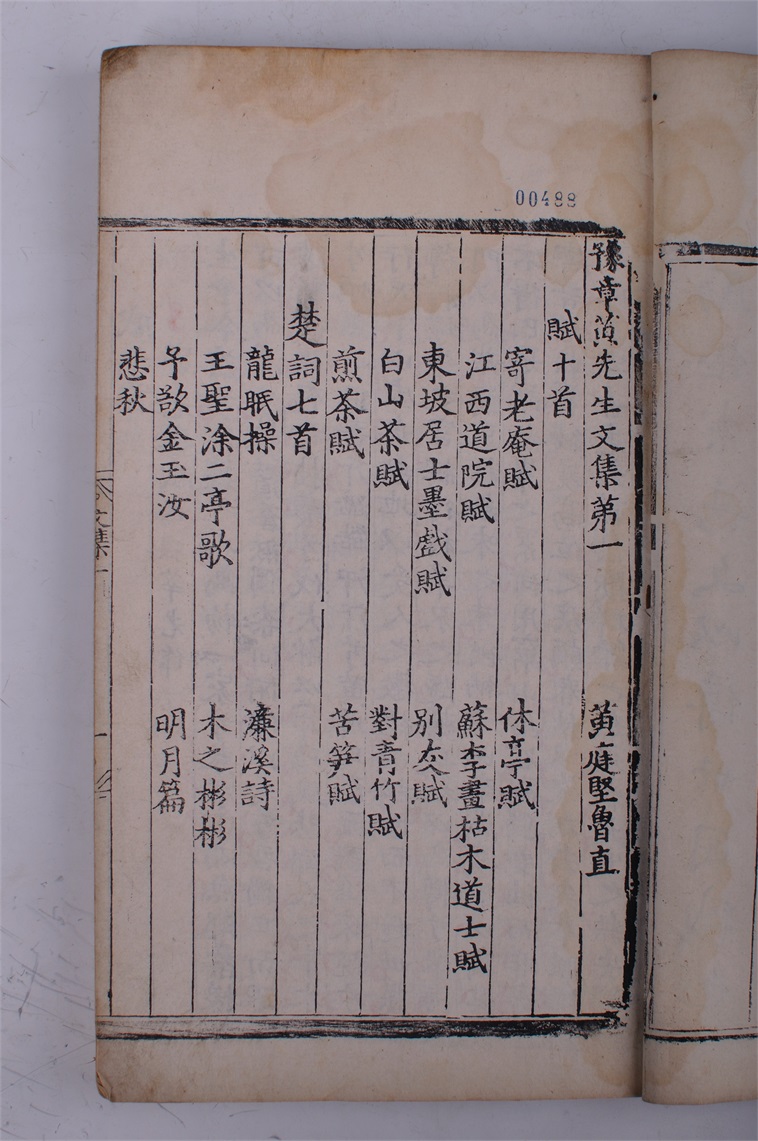 00488
豫章黃先生文集第一　黃庭堅魯直
賦十首
寄老庵賦　休亭賦
江西道院賦　蘇李畫枯木道士賦
東坡居士墨戲賦　別友賦
白山茶賦　對青竹賦
煎茶賦　苦笋賦
楚詞七首
龍眠操　濂溪詩
王聖涂二亭歌　木之彬彬
予欲金玉汝　明月篇
悲秋
文集一